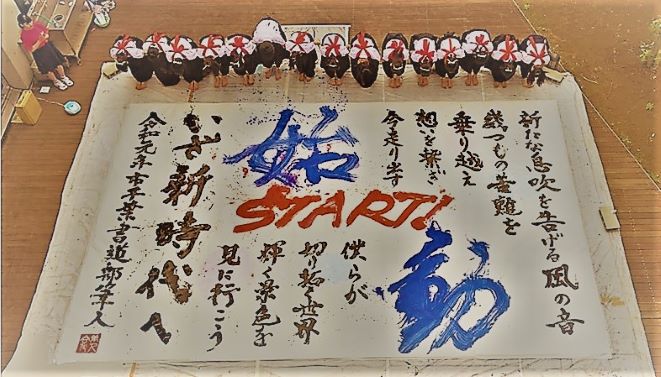 新たな息吹を告げる風の音
幾つもの苦難を
乗り越え
想いを繋ぎ
今走り出す
始
START!
動
僕らが
切り拓く世界
輝く景色を
見に行こう
いざ新時代へ
令和元年 市千葉書道部筆入